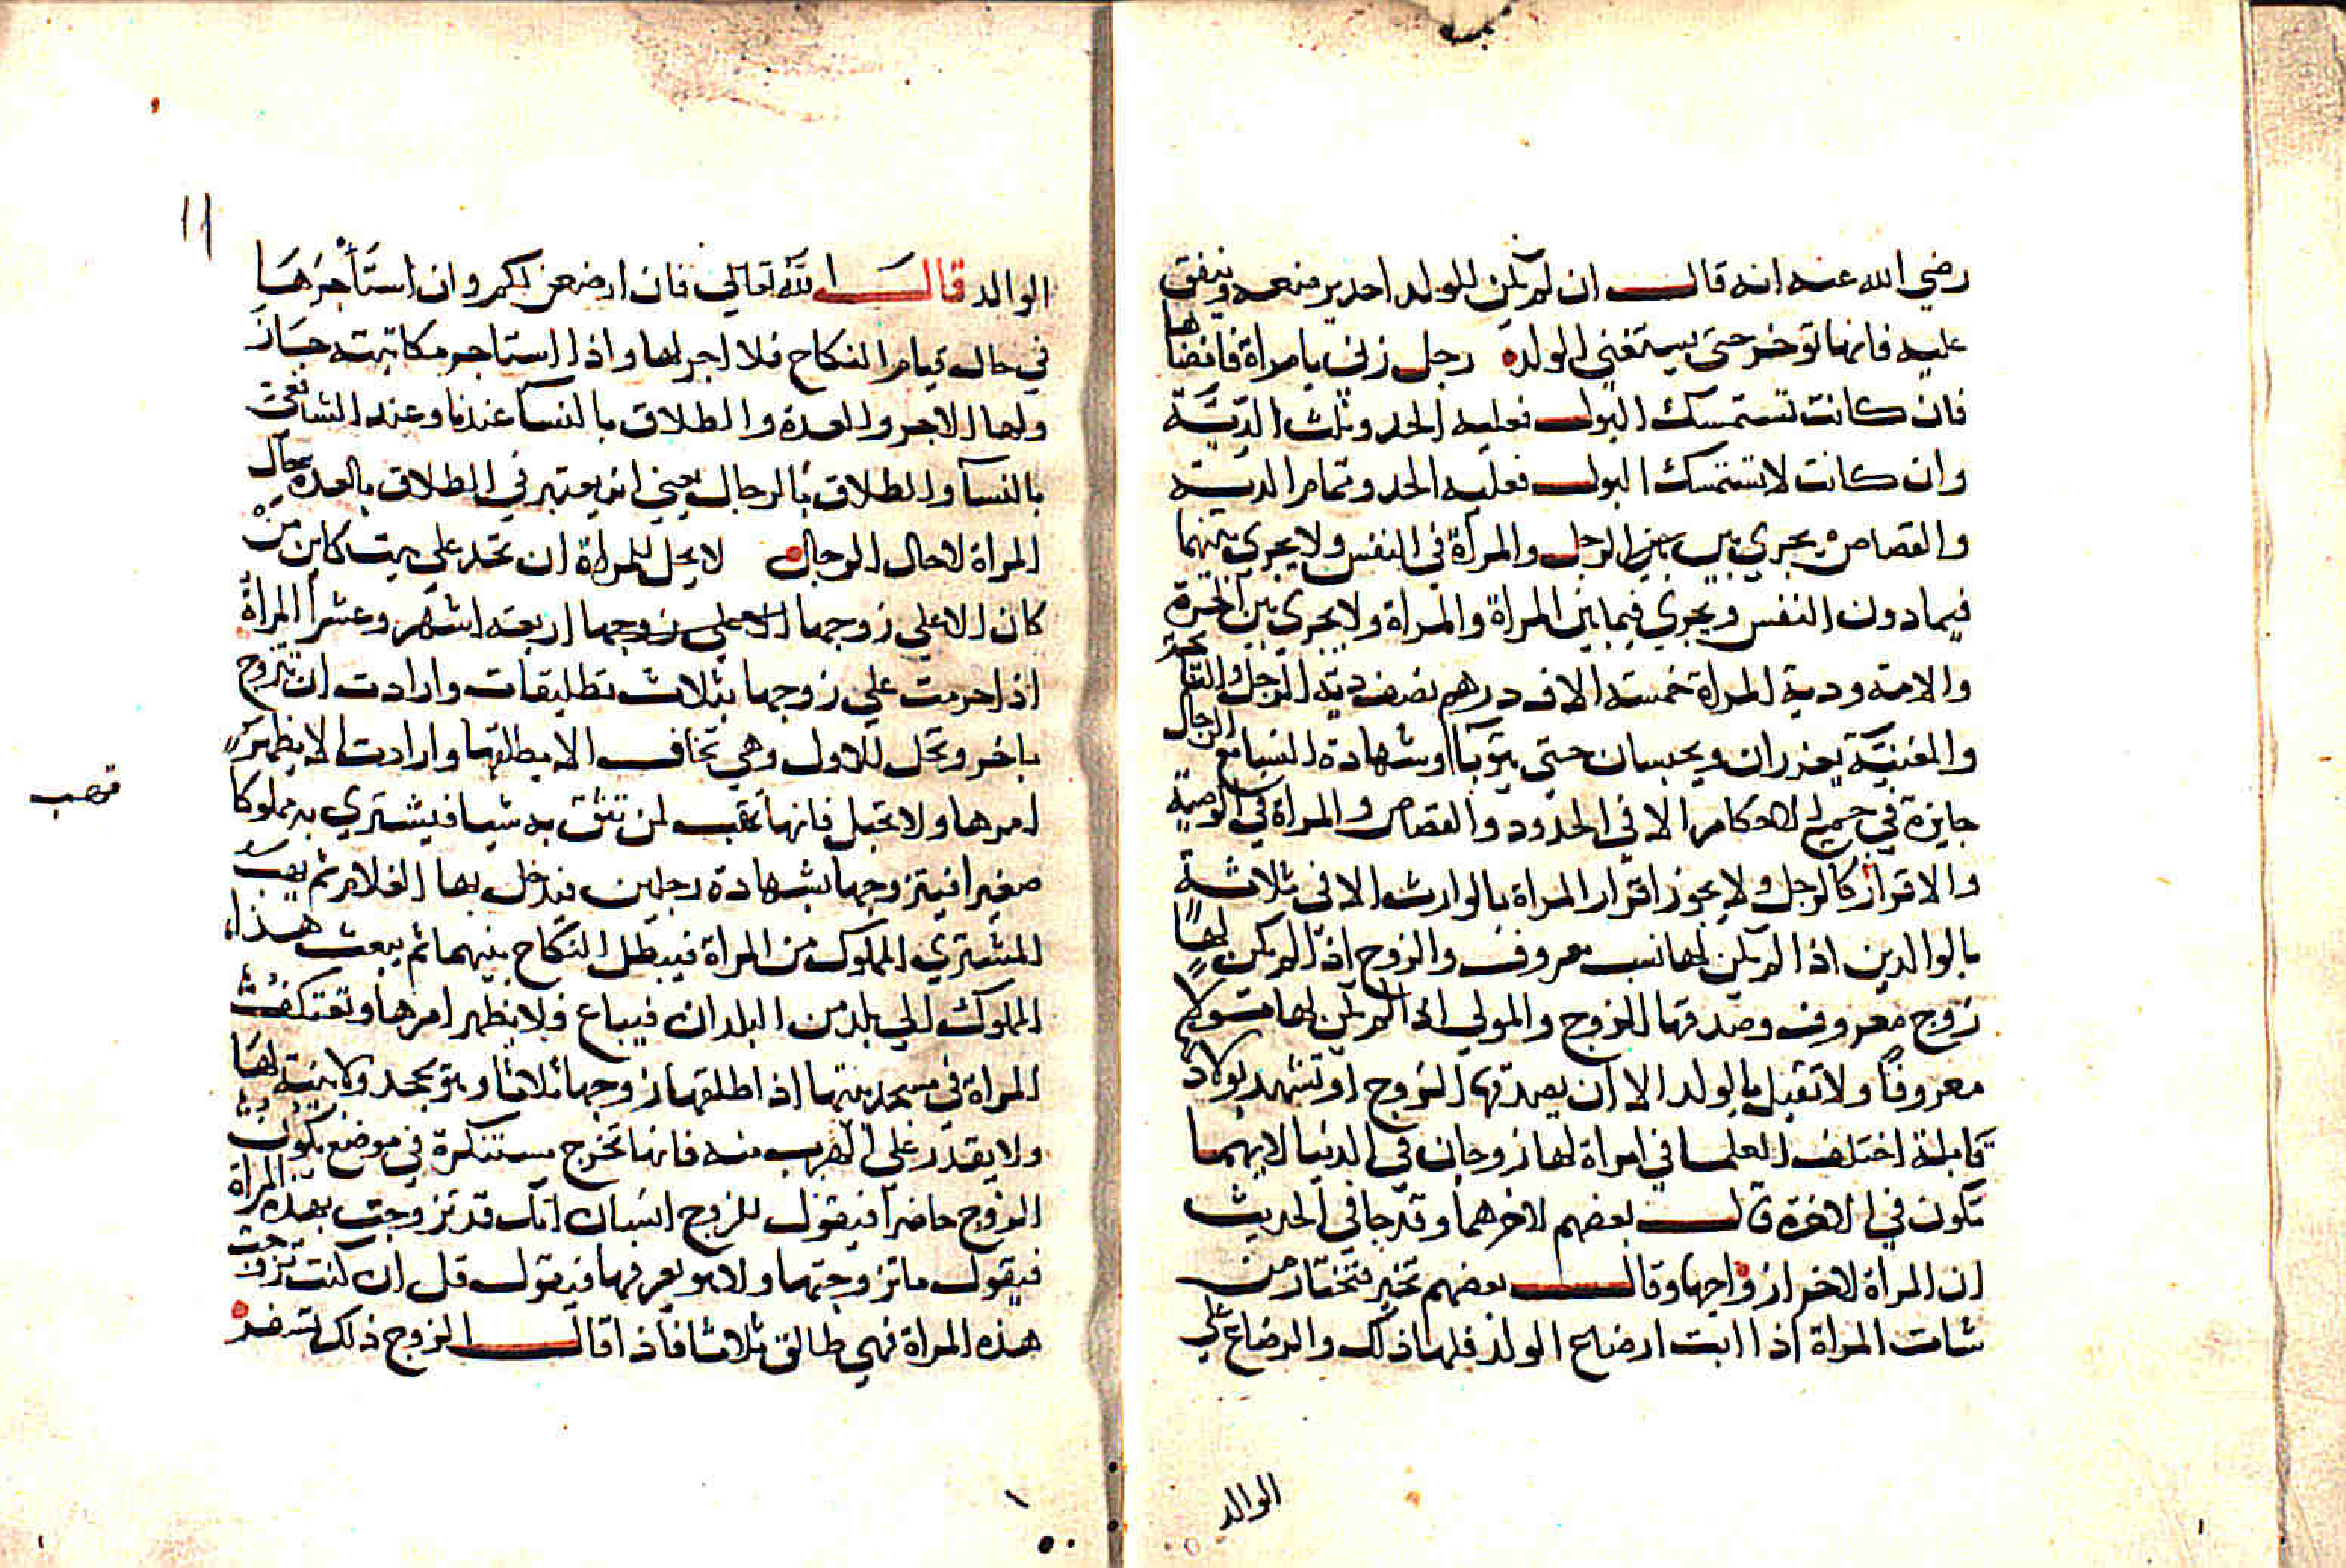 رضي الله عنه انه قال ان لم يكن للولد احد يرضعه وينفق
عليه فانها توخر حتى يستغني الولد رجل زنى بامراة فافضاها
فان كانت تستمسك البول فعليه الحد وثلث الدية
وان كانت لا تستمسك البول فعليه الحد وتمام الدية
والقصاص يجري بين الرجل والمراة في النفس ولا يجري بينهما
فيما دون النفس ويجري فيما بين المراة والمراة ولا يجري بين الحرة
والامة ودية المراة خمسة الاف درهم نصف دية الرجل
والمغنية يعزران ويحبسان حتى يتوبا وشهادة النسا مع الرجال
جايزة في جميع الاحكام الا في الحدود والقصاص والمراة في الوصية
والاقرار كالرجل ولا يجوز اقرار المراة بالوارث الا في ثلاثة
بالوالدين اذا لم يكن لها نسب معروف والزوج اذا لم يكن لها
زوج معروف وصدقها الزوج والمولي اذا لم يكن لها
معروفا ولا تقبل بالولد الا ان يصدقها الزوج او تشهد بولاد
قابلة اختلف العلما في امراة لها زوجان في الدنيا لايهما
تكون في الاخرة قال بعضهم لاخرهما وقد جا في الحديث
ان المراة لاخر ازواجها وقال بعضهم تخير فتختار من
شات المراة اذا ابت ارضاع الولد فلها ذلك والرضاع علي
الوالد
١١
الوالد قال الله تعالي فان ارضعن لكم وان استأجرها
في حال قيام النكاح فلا اجر لها واذا استاجر مكاتبته جاز
ولها الاجر والعدة والطلاق بالنسا عندنا وعند الشافعي
بالنسا والطلاق بالرجال يعني انه يعتبر في الطلاق بالعدة بحال
المراة لا حال الرجال لا يحل للمراة ان تحد علي ميت كاين من
كان الا علي زوجها الا علي زوجها اربعة اشهر وعشرا المراة
اذا حرمت علي زوجها بثلاث تطليقات وارادت ان تتزوج
باخر وتحل للاول وهي تخاف الا يطلقها وارادت الا يظهر
امرها ولا تحبل فانها تهب لمن تثق به شيا فيشتري به مملوكا
صغيرا فيتزوجها بشهادة رجلين فيدخل بها الغلام ثم يهب
المشتري المملوك من المراة فيبطل النكاح بينهما ثم يبعث هذا
المملوك الي بلد من البلدان فيباع فلا يظهر امرها وتعتكف
المراة في مسجد بيتها اذا طلقها زوجها ثلاثا وهو يجحد ولا بينة لها
ولا يقدر علي الهرب منه فانها تخرج مستنكرة في موضع يكون
الزوج حاضرا فيقول للزوج انسان انك قد تزوجت بهذه المراة
فيقول ما تزوجتها ولا هو يعرفها فيقول قل ان كنت تزوجت
هذه المراة فهي طالق ثلاثا فاذا قال الزوج ذلك